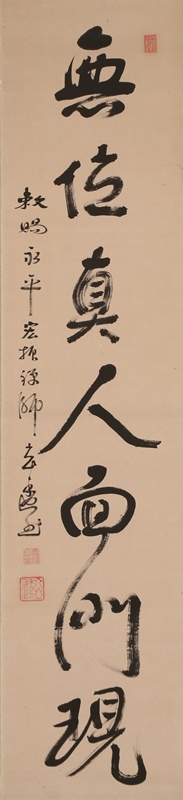 無位真人面門現
勅賜永平宏振禅師